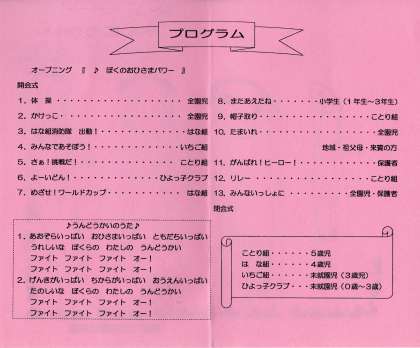 プログラム
オープニング 『 ♪ ぼくのおひさまパワー 』
開会式
1．体 操・・・・・・・・・・・・・・・・全園児
2．かけっこ・・・・・・・・・・・・・・・全園児
3．はな組消防隊 出動！・・・・・・・・・・はな組
4．みんなであそぼう！・・・・・・・・・・いちご組
5．さぁ！挑戦だ！・・・・・・・・・・・・ことり組
6．よーいどん！・・・・・・・・・・ひよっ子クラブ
7．めざせ！ワールドカップ・・・・・・・・・はな組
8．またあえたね・・・・・・小学生（1年生～3年生）
9．帽子取り・・・・・・・・・・・・・・・ことり組
10．たまいれ・・・・・・・・・・・・・・・全園児
地域・祖父母・来賓の方
11．がんばれ！ヒーロー！・・・・・・・・・保護者
12．リレー・・・・・・・・・・・・・・・ことり組
13．みんないっしょに・・・・・・・全園児・保護者
閉会式
♪うんどうかいのうた♪
1．あおぞらいっぱい おひさまいっぱい ともだちいっぱい
うれしいな ぼくらの わたしの うんどうかい
ファイト ファイト ファイト オー！
ファイト ファイト ファイト オー！
2．げんきがいっぱい ちからがいっぱい おうえんいっぱい
たのしいな ぼくらの わたしの うんどうかい
ファイト ファイト ファイト オー！
ファイト ファイト ファイト オー！
ことり組・・・・・・5歳児
は な 組・・・・・・4歳児
いちご組・・・・・・未就園児（3歳児）
ひよっ子クラブ・・・未就園児（0歳～3歳）